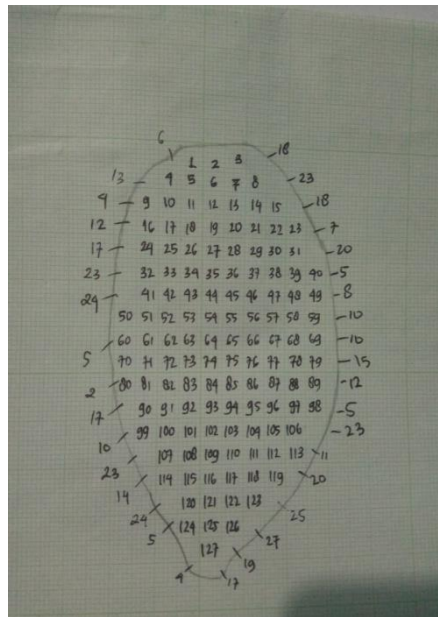 6 1 2 3 18
13 4 5 6 7 8 23
9 9 10 11 12 13 14 15 18
12 16 17 18 19 20 21 22 23 7
17 24 25 26 27 28 29 30 31 20
23 32 33 34 35 36 37 38 39 40 5
24 41 42 43 44 45 46 47 48 49 8
50 51 52 53 54 55 56 57 58 59 10
60 61 62 63 64 65 66 67 68 69 10
5 70 71 72 73 74 75 76 77 78 79 15
2 80 81 82 83 84 85 86 87 88 89 12
17 90 91 92 93 94 95 96 97 98 5
99 100 101 102 103 104 105 106 23
10 107 108 109 110 111 112 113 11
23 114 115 116 117 118 119 20
14 120 121 122 123
24 124 125 126 25
5 127 27
4 17 19